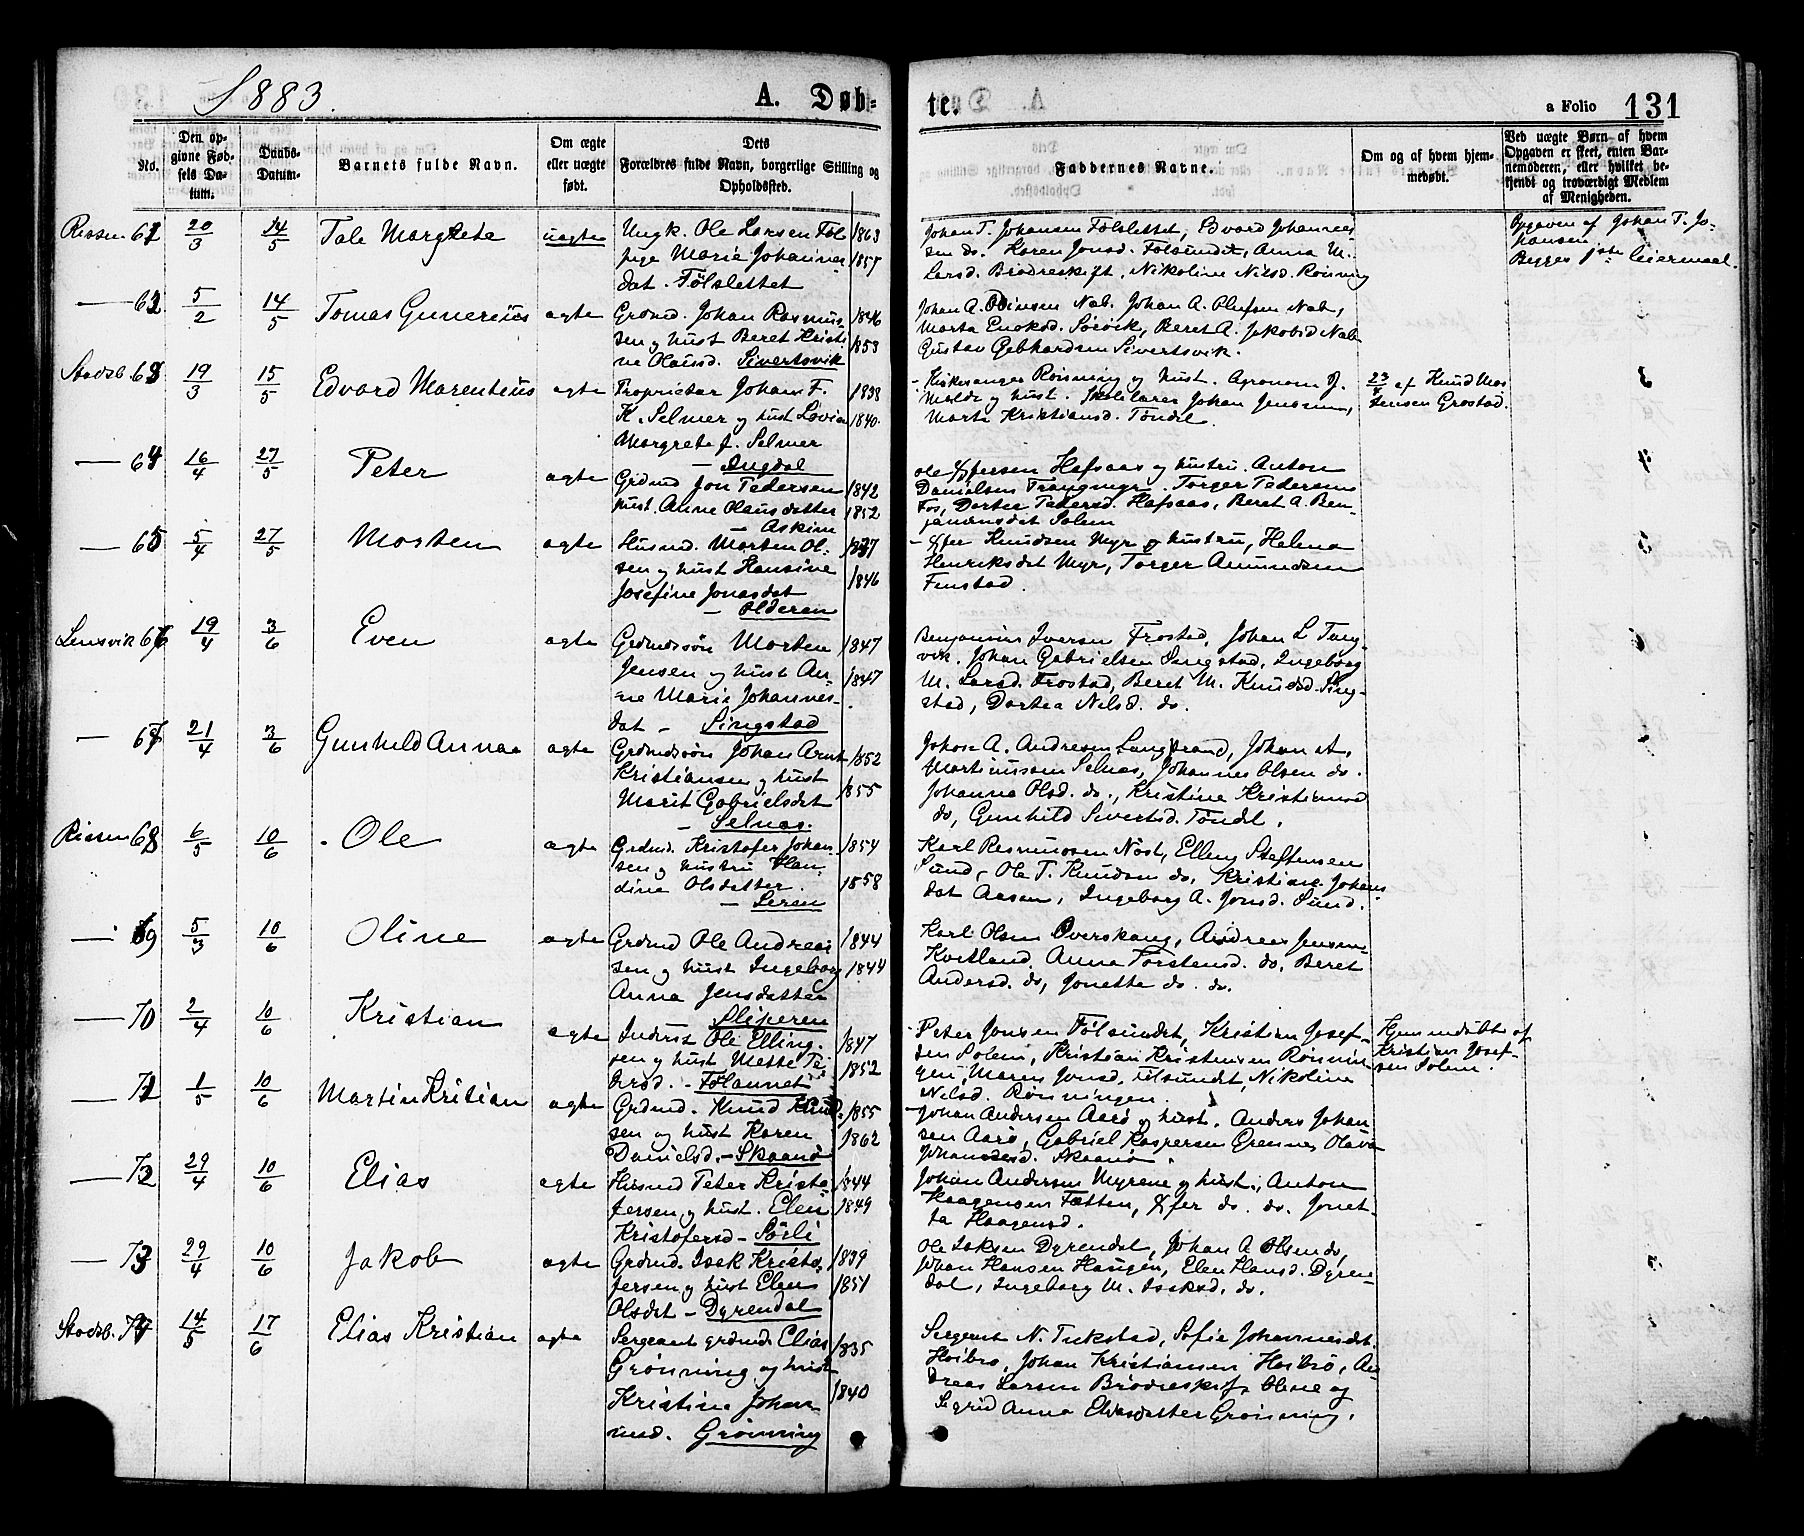 1883.
A. Døb-
te.
a Folio 131
No.
Den op-
givne Fød-
sels Da-
tum.
Daabs-
Datum.
Barnets fulde Navn.
Om ægte
eller uægte
født.
Dets
Forældres fulde Navn, borgerlige Stilling og
Opholdssted.
Faddernes Navne.
Om og af hvem hjem-
medøbt.
Ved uægte Børn af hvem
Opgaven er skeet, enten Bar-
nemoderen, eller hvilket be-
kjendt og troværdigt Medlem
af Menigheden.
Rissen 61 20/3 14/5 Tale Margrete uagte
Ungk. Ole Larsen Føl 1863
Pige Marie Johannes 1857
dat. Følslettet
Johan T. Johansen Følslettet, Edvard Johannes
sen do. Karen Jonsd. Følsundet, Anna M.
Larsd. Brødreskift, Nikoline Nilsd. Rønning
Opgaven af Johan T. Jo-
hansen
Begges 1ste Leiermaal.
— 62 5/2 14/5 Tomas Gunerius agte
Grdmd. Johan Rasmus- 1846
sen og hust Beret Kristi 1853
ne Olausd. Sivertsvik
Johan A. Odinsen Nab. Johan A. Olufsen Nab,
Marta Enoksd. Sørvik, Beret A. Jakobsd Nab
Gustav Gebhardsen Sivertsvik.
Stadsb. 63 19/3 15/5 Edvard Marentius agte
Proprietær Johan F. 1838
K. Selmer og hust Lovise 1840.
Margrete f. Selmer
— Augdal
- Kirkesanger Rønning og hust. Agronom J.
Molde og hust. Skolelærer Johan Jenssen,
Marta Kristiansd. Tøndel.
af Knud Mor
tensen Grøstad.
— 64 16/4 27/5 Peter agte
Grdmd Jon Pedersen 1842
hust. Anne Olausdatter 1852
— Askim
Ole Hafsaas og hustru. Anton
Danielsen Trangmyr. Torger Pedersen
Fos, Dortea Pedersd. Hafsaas, Beret A. Ben-
jaminsdat Solem
— 65 5/4 27/5 Morten agte
Husmd. Morten Ol- 1837
sen og hust Hansine 1846
Josefine Jonasdat
— Olderen
Knudsen Myr og hustru, Helena
Henriksdat Myr, Torger Amundsen
Finstad.
Lensvik 66 19/4 3/6 Even agte
Grdmdssøn Morten 1847
Jensen og hust An- 1847
ne Marie Johannes-
dat — Singstad
Benjamin Iversen Frostad, Johan L
vik. Johan Gabrielsen Singstad, Ingeborg
M. Larsd. Frostad, Beret M. Knudsd. Sing-
stad, Dortea Nilsd. do.
— 67 21/4 3/6 Gunhild Anna agte
Grdmdssøn Johan Arnt 1852
Kristiansen og hust 1855
Marit Gabrielsdat
— Selnæs.
Johan A. Andresen Langstrand, Johan A.
Martinussen Selnæs, Johannes Olsen do.
Johanna Olsd. do., Kristine Kristiansd
do, Gunhild Sivertsd. Tøndel.
Rissen 68 6/5 10/6 Ole agte
Grdmd. Kristofer Johan- 1854
sen og hustru Han- 1858
dine Olsdatter.
— Seren
Karl Rasmussen Nøst, Elling Steffensen
Sund, Ole T. Knudsen do, Kristiane Johans
dat Aasen, Ingeborg A. Jonsd. Sund.
— 69 5/3 10/6 Oline agte
Grdmd Ole Andreas 1844
sen og hust Ingeborg 1844
Anna Jensdatter
Sliperen
Karl Olsen Overskaug, Andreas Jensen
Kvitland, Anna Torstensd. do, Beret
Andersd. do, Jonette do. do.
— 70 2/4 10/6 Kristian agte
Inderst Ole Elling- 1847
sen og hust Mette Pe 1852
dersd. - Følannet
- Peter Jonsen Følsundet, Kristian Josef-
sen Solem, Kristian Kristensen Rønnin-
gen, Maren Jonsd. Følsundt, Nikoline
Nilsd. Rønningen.
Hjemmedøbt af
Kristian Josef-
sen Solem.
— 71 1/5 10/6 Martin Kritian agte
Grdmd. Knud Knud- 1855
sen og hust Karen 1862
Danielsd. - Skaanø
- Johan Andersen Aarø og hust. Anders Johan
sen Aarø, Gabriel Kaspersen Grønnes, Olava
Johannesd. Skaanø.
— 72 29/4 10/6 Elias agte
Husmd Peter Kristo- 1844
fersen og hust. Elen 1849
Kristofersd — Sørli
Johan Andersen Myrene og hust., Anton
Haagensen Fætten, do. do. Jonet-
ta Haagensd.
— 73 29/4 10/6 Jakob agte
Grdmd. Isak Kristo- 1839
fersen og hust Elen 1851
Olsdat — Dyrendal
Ole Isaksen Dyrendal, Johan A Olsen do,
Johan Hansen Haugen, Elen Hansd. Dyren-
dal, Ingeborg M. Isaksd. do.
Stadsb. 74 14/5 17/6 Elias Kristian agte
Sergeant grdmd Elias 1835
Grønning og hust 1840
Kristine Johan-
nesd. Grønning
Sergeant N. Tukstad, Sofie Johannesdt.
Høibro, Johan Kristiansen Høibrø, An-
dreas Larsen Brødreskift, Oline og
Sigrid Anna Eliasdatter Grønning.